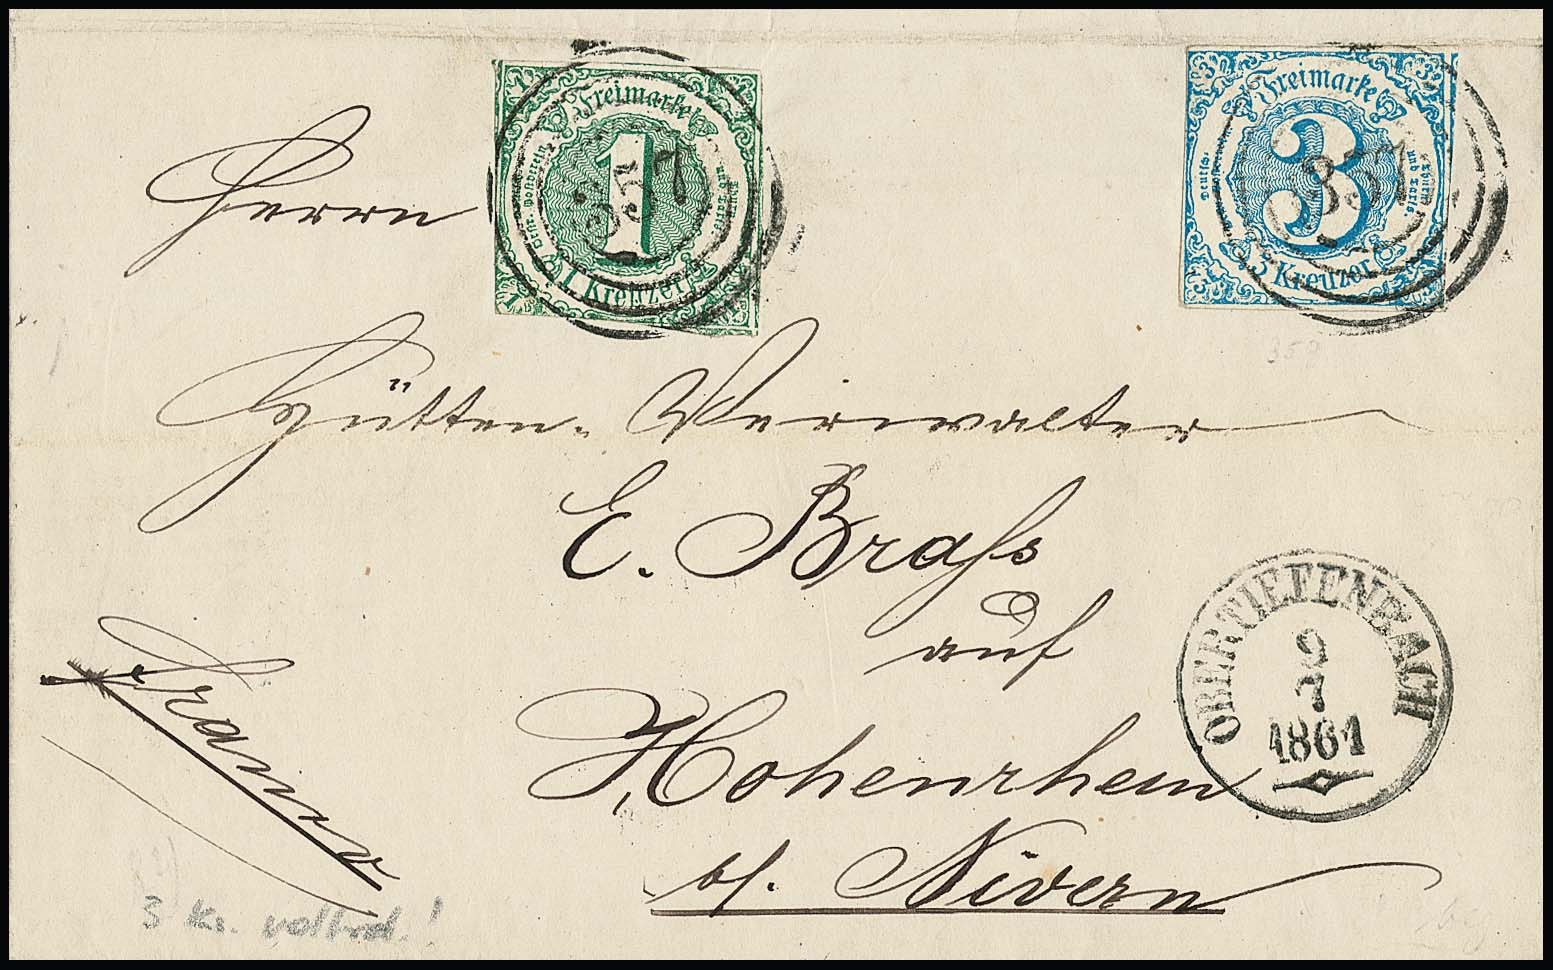 Freimarke
1
Deutsch. Postbezirk
1. Kreuzer
357
Freimarke
3
3 Kreuzer
357
359
Herrn
Hütten-Verwalter
E. Braſs
auf
Hohenrhein
b/. Nivern
Franco
OBERTIEFENBACH
9
7
1861
3 kr. vollrd.!